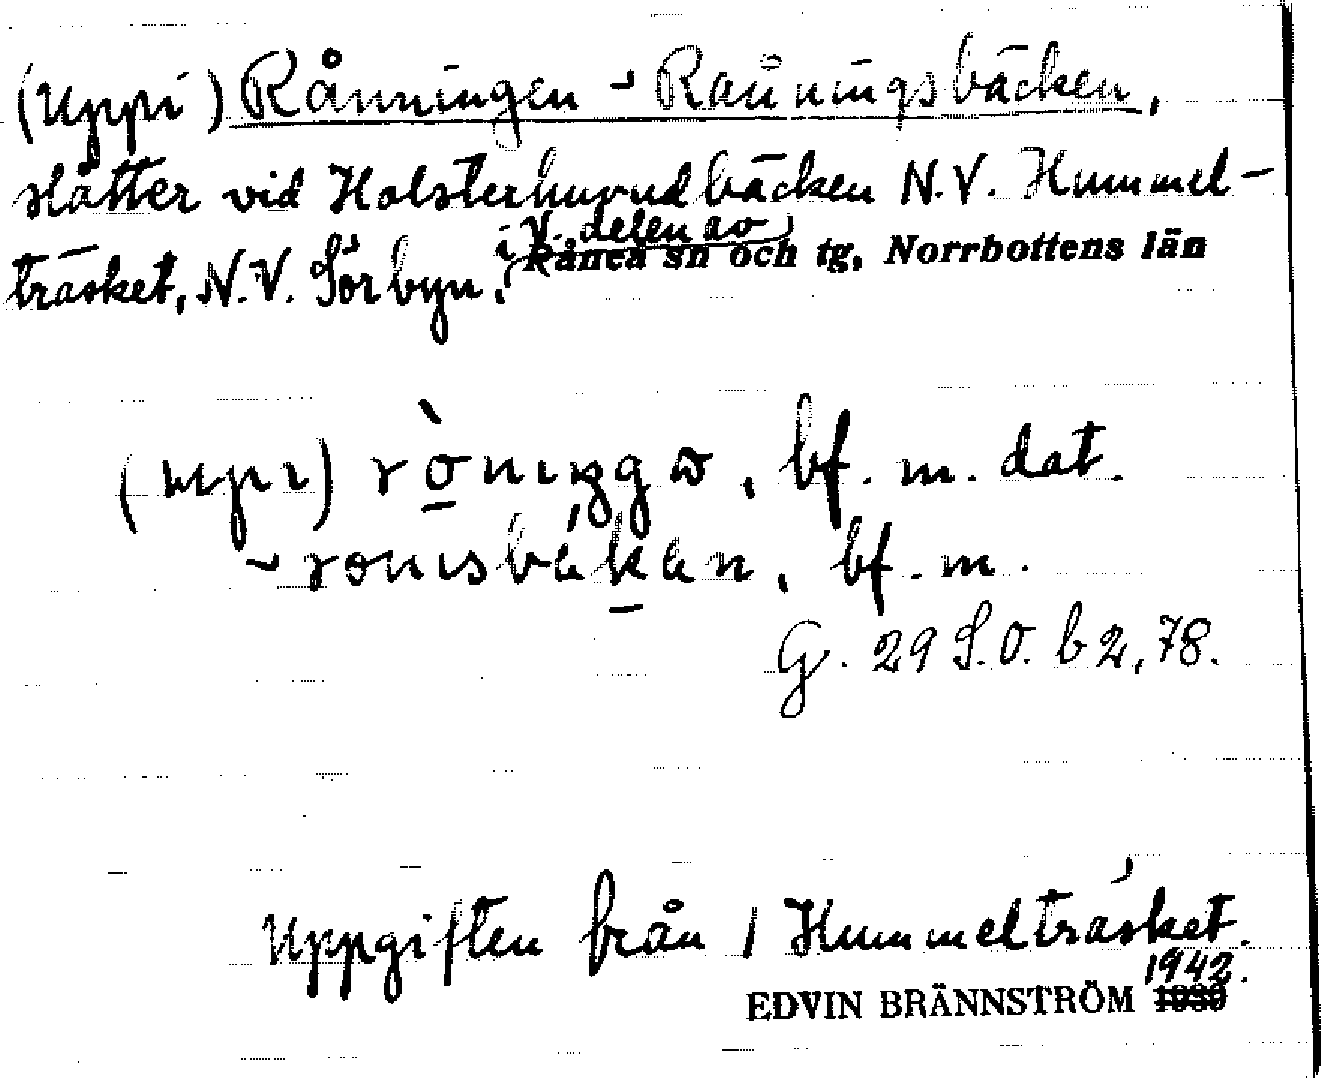 (Uppi) Rånningen ~ Rånningsbäcken,
slåtter vid Holsterhuvudbäcken N.V. Hummel-
i V. delen av
träsket, N.V. Sörbyn. Råneå sn och tg, Norrbottens län
(upi) ròniŋgɷ, bf. m. dat.
~ ronısbäkän, bf. m.
G. 29 S.O. b 2, 78.
Uppgiften från 1 Hummelträsket.
1942.
EDVIN BRÄNNSTRÖM 1939